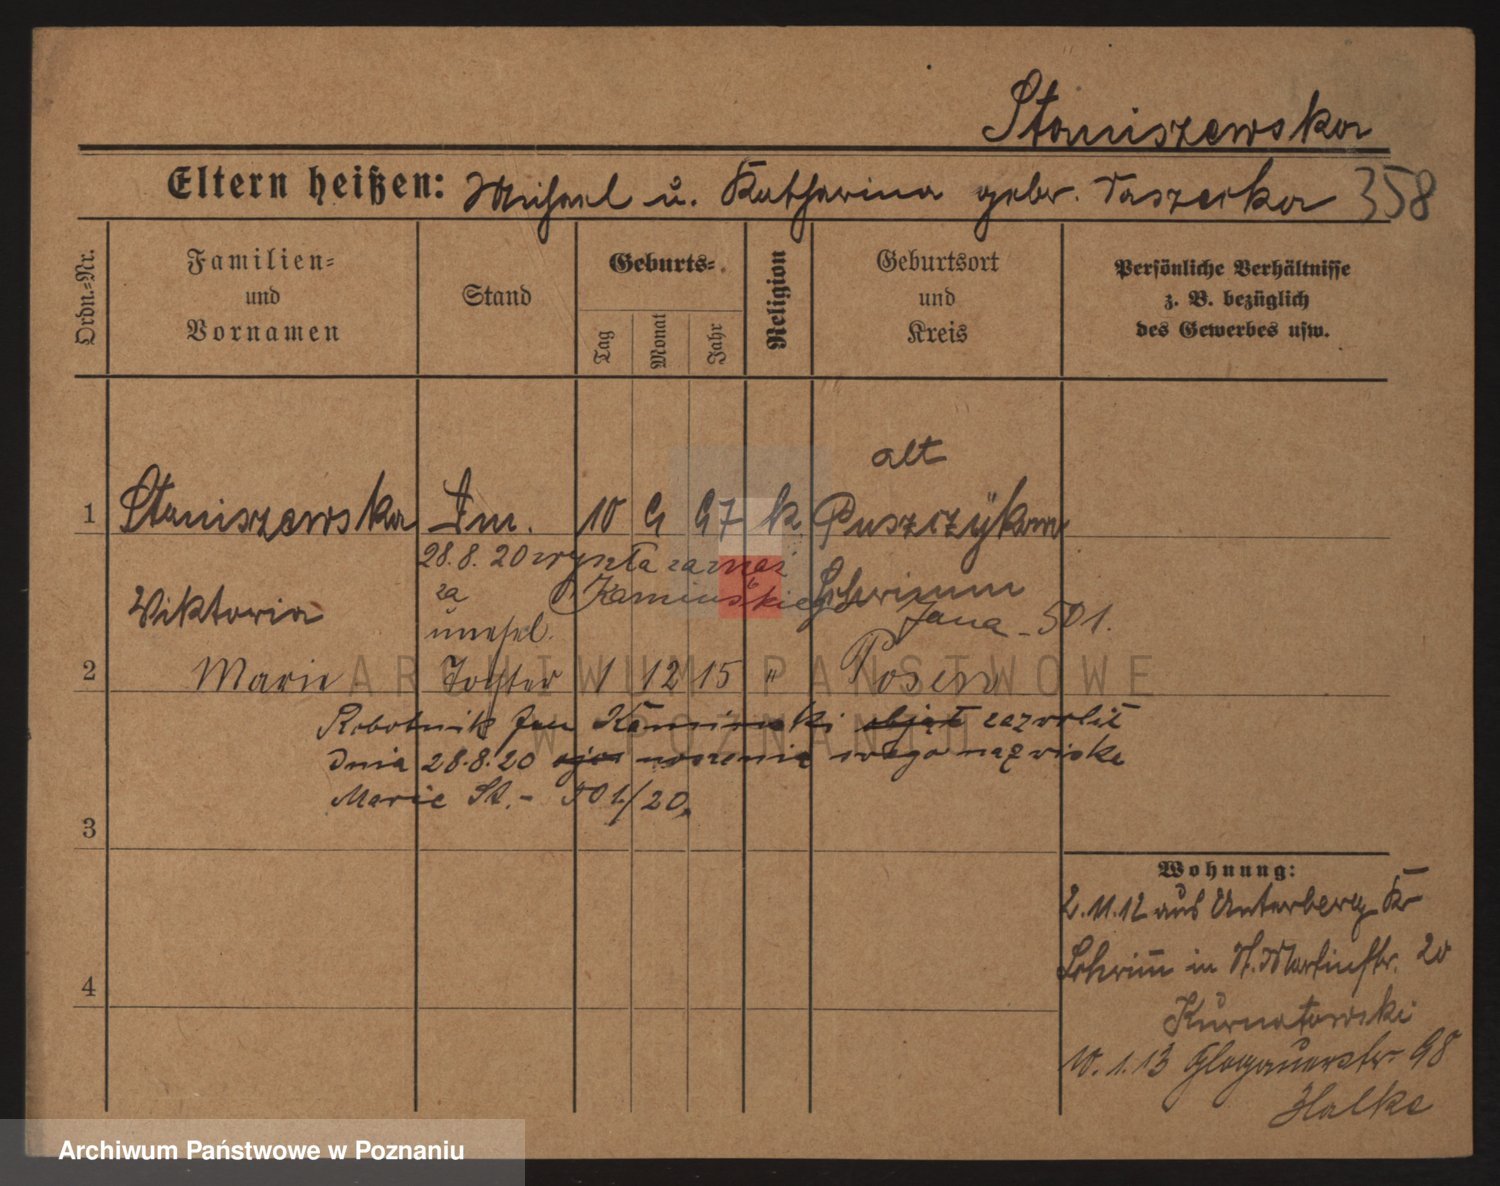 Staniszewska
Eltern heißen: Michael u. Katharina gebr. Taszerka 358
Ordn.-Nr.
Familien-
und
Vornamen
Stand
Geburts-
Tag
Monat
Jahr
Religion
Geburtsort
und
Kreis
Persönliche Verhältnisse
z. B. bezüglich
des Gewerbes usw.
alt
1 Staniszewska Dm. 10 9 97 k Puszczÿkow
28.8.20 wyszła zamąż
za Kamińskiego Schrimm
Viktoria Jana - 501.
unehel.
2 Marie Tochter 1 12 15 " Posen
Robotnik Jan Kamiński objął zezwolił
dnia 28.8.20 noszenia swego nazwiska
Marie St. - 501/20.
3
4
Wohnung:
2.11.12 aus Unterberg Kr
Schrim̅ in St. Martinstr. 20
Kurnatowski
10.1.13 Glogauerstr. 98
Halke
ARCHIWUM PAŃSTWOWE
W POZNANIU
Archiwum Państwowe w Poznaniu